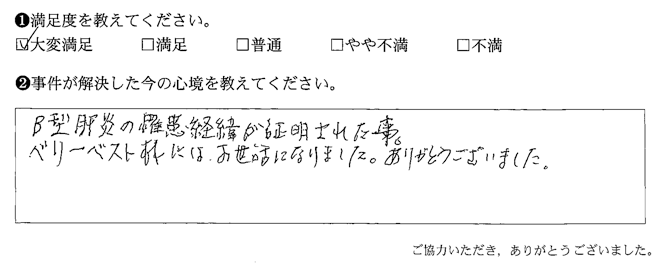 ❶満足度を教えてください。
☑大変満足 □満足 □普通 □やや不満 □不満
❷事件が解決した今の心境を教えてください。
B型肝炎の罹患経緯が証明された事。
ベリーベスト様には、お世話になりました。ありがとうございました。
ご協力いただき，ありがとうございました。